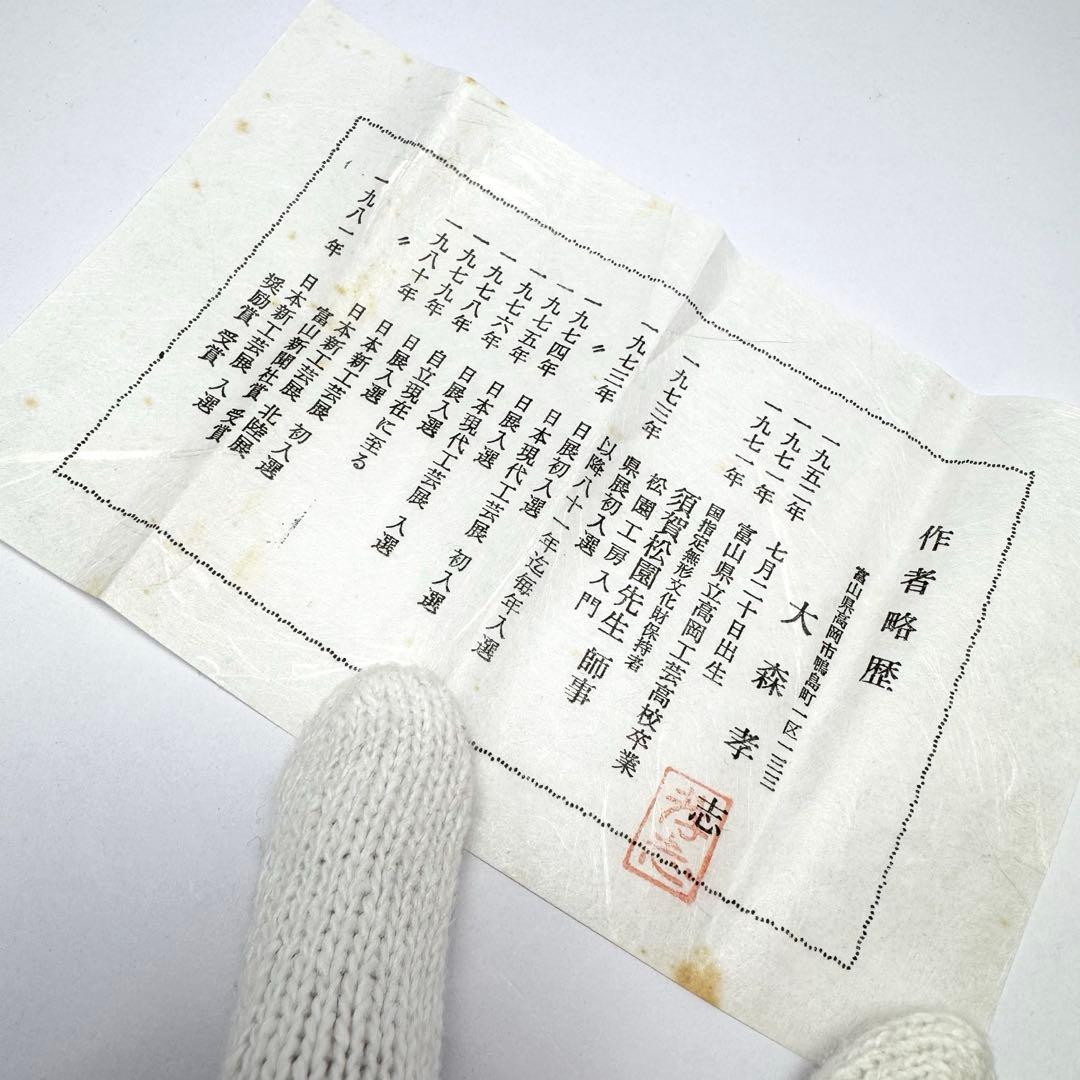 作者略歴
富山県高岡市鴨島町一区一三三
大森孝志
一九五二年 七月二十日出生
一九七一年 富山県立高岡工芸高校卒業
一九七一年 国指定無形文化財保持者
須賀松園先生 師事
松園工房入門
一九七三年 県展初入選
以降八十一年迄毎年入選
一九七三年 日展初入選
〃 日本現代工芸展 初入選
一九七四年 日展入選
一九七五年 日本現代工芸展 入選
一九七六年 日展入選
一九七八年 自立現在に至る
一九七九年 日展入選
一九八十年 日本新工芸展 初入選
〃 日本新工芸展 北陸展
富山新聞社賞 受賞
一九八一年 日本新工芸展 入選
奨励賞 受賞